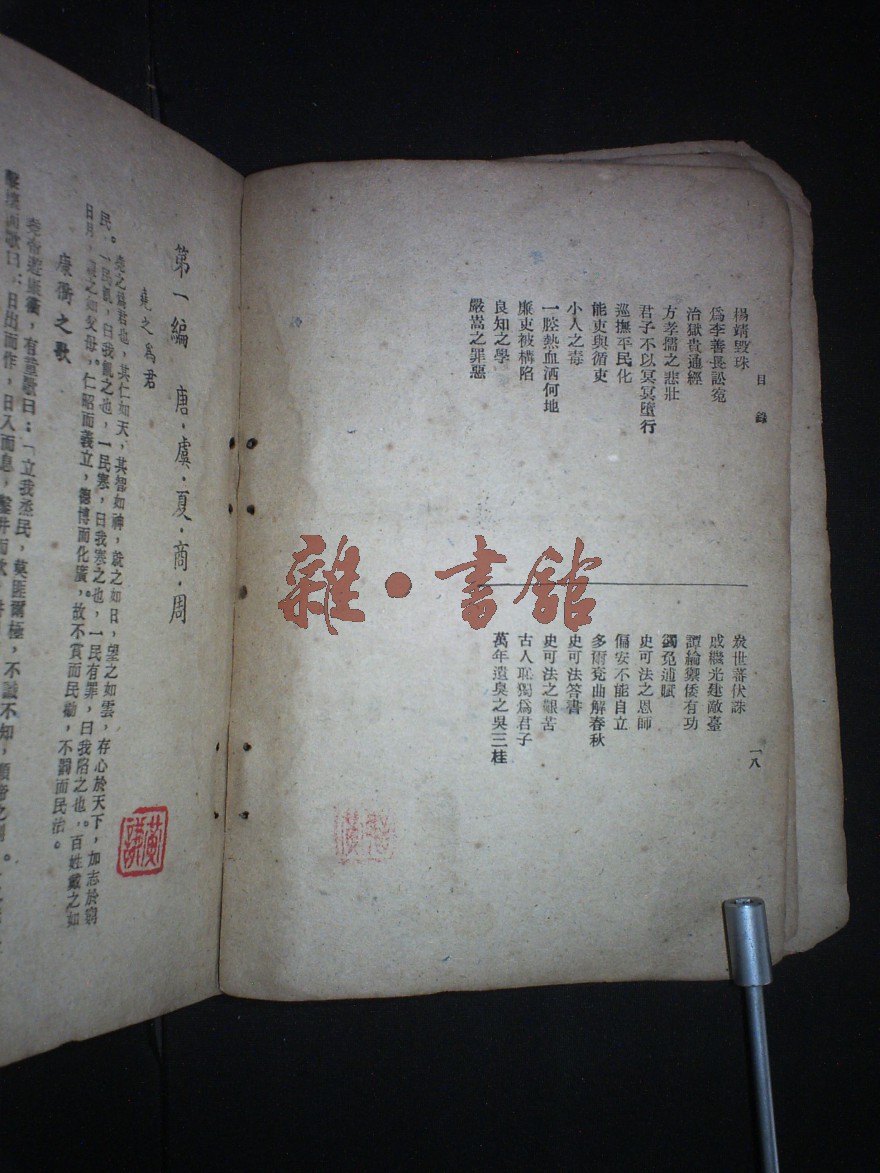 目錄
楊靖毀珠
爲李善長訟寃
治獄貴通經
方孝孺之悲壯
君子不以冥冥墮行
巡撫平民化
能吏與循吏
小人之毒
一腔熱血洒何地
廉吏被構陷
良知之學
嚴嵩之罪惡
嚴世蕃伏誅
戚繼光建敵臺
譚綸禦倭有功
蠲免逋賦
史可法之恩師
偏安不能自立
多爾袞曲解春秋
史可法答書
史可法之艱苦
古人恥獨爲君子
萬年遺臭之吳三桂
一八
雜·書館
第一編 唐·虞·夏·商·周
堯之爲君
堯之爲君也，其仁如天，其智如神，就之如日，望之如雲，存心於天下，加志於窮
民。一民飢，曰我飢之也，一民寒，曰我寒之也，一民有罪，曰我陷之也。百姓戴之如
日月，親之如父母。仁昭而義立，德博而化廣。故不賞而民勸，不罰而民治。
康衢之歌
堯帝遊康衢，有童歌曰：「立我烝民，莫匪爾極，不識不知，順帝之則。
擊壤而歌曰：日出而作，日入而息，鑿井而飲，